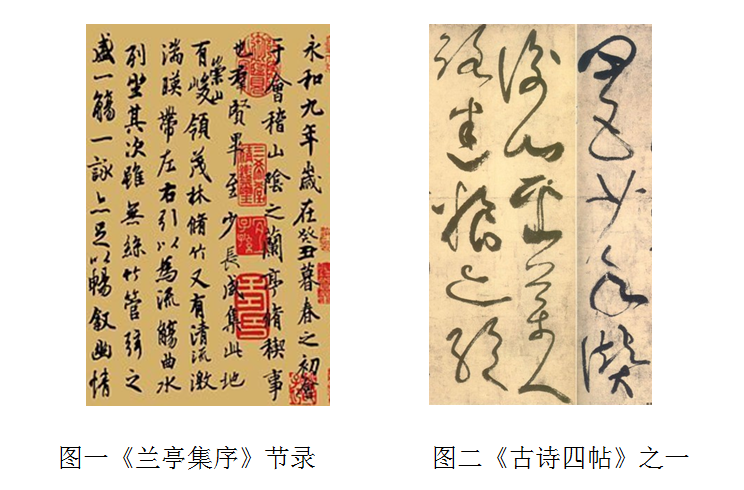 永和九年歲在癸丑暮春之初會
于會稽山陰之蘭亭脩稧事
也羣賢畢至少長咸集此地
有崇山峻領茂林脩竹又有清流激
湍暎帶左右引以為流觴曲水
列坐其次雖無絲竹管弦之
盛一觴一詠亦足以暢敘幽情
四五少年贊
衡山採藥人
路迷粮亦絕
图一《兰亭集序》节录
图二《古诗四帖》之一